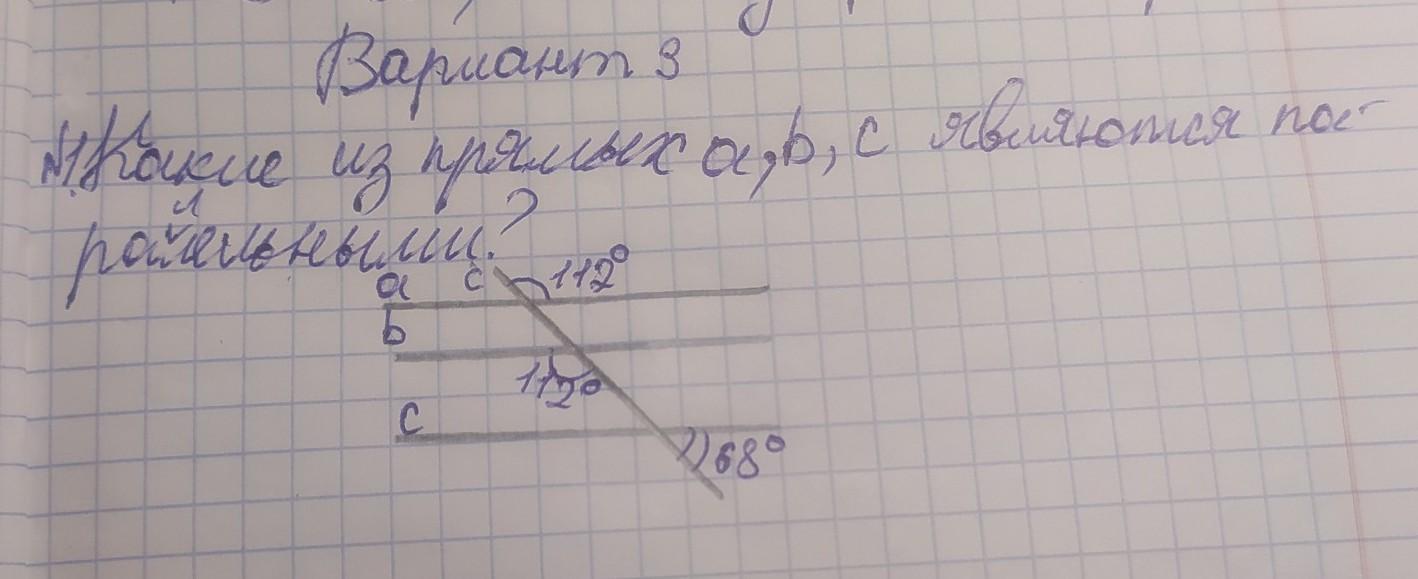 Вариант 3
№1 Какие из прямых a, b, c являются па-
раллельными?
a c 112°
b
112°
c
68°